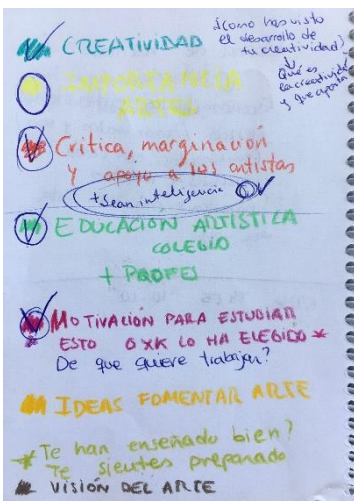 CREATIVIDAD
¿Como has visto
el desarollo de
tu creatividad?
Qué es
la creatividad
y que aporta
IMPORTANCIA
ARTE
Critica, marginación
y apoyo a los artistas
+ Sean inteligencia
EDUCACIÓN ARTISTICA
COLEGIO
+ PROFES
MOTIVACIÓN PARA ESTUDIAR
ESTO O XK LO HA ELEGIDO *
De que quiere trabajar?
IDEAS FOMENTAR ARTE
* Te han enseñado bien?
Te sientes preparado
VISIÓN DEL ARTE